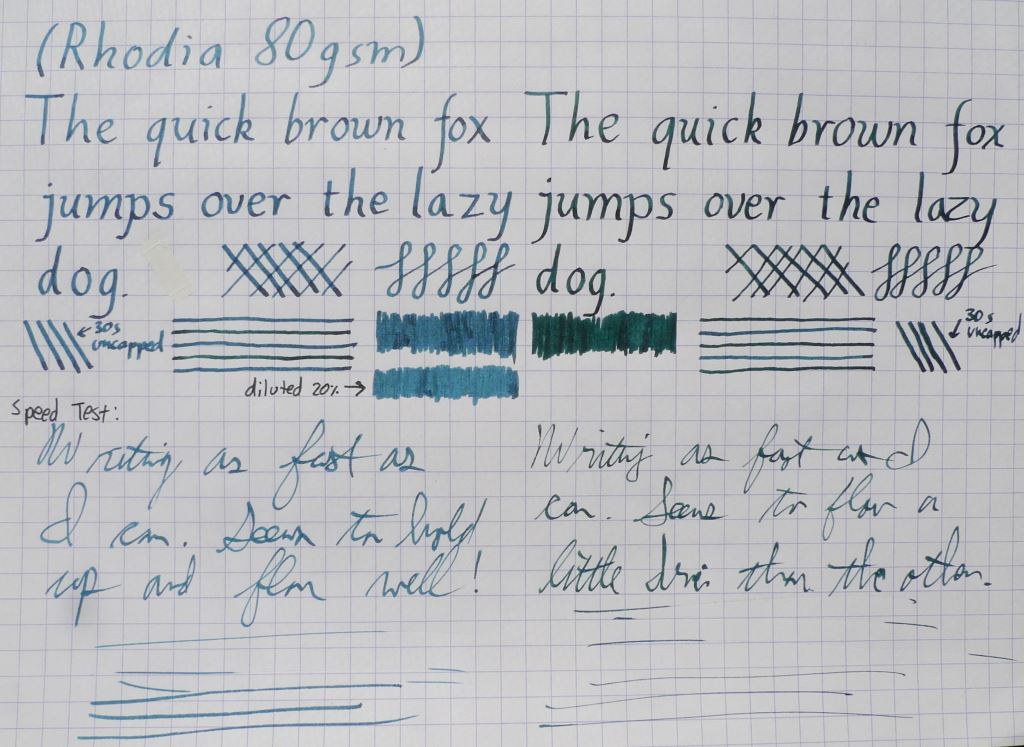 (Rhodia 80gsm)
The quick brown fox
jumps over the lazy
dog.
← 30s
uncapped
diluted 20% →
The quick brown fox
jumps over the lazy
dog.
30s
uncapped
Speed Test:
Writing as fast as
I can. Seems to hold
up and flow well!
Writing as fast as I
can. Seems to flow a
little drier than the other.